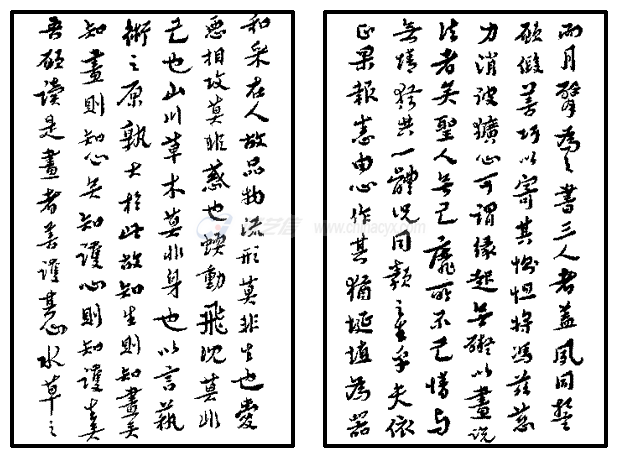 而月臂為之書三人者蓋夙同誓
願假善巧以寄其惻怛將馮茲慈
力消彼獷心可謂緣起无礙以畫說
法者矣聖人无己靡所不己情与
无情猶共一體況同類之生乎夫依
正果報悉由心作其猶埏埴為器
和采在人故品物流形莫非生也愛
惡相攻莫非惑也蝡動飛沈莫非
己也山川草木莫非身也以言藝
術之原孰大於此故知生則知畫矣
知畫則知心矣知護心則知護生矣
吾願讀是畫者善護其心水草之